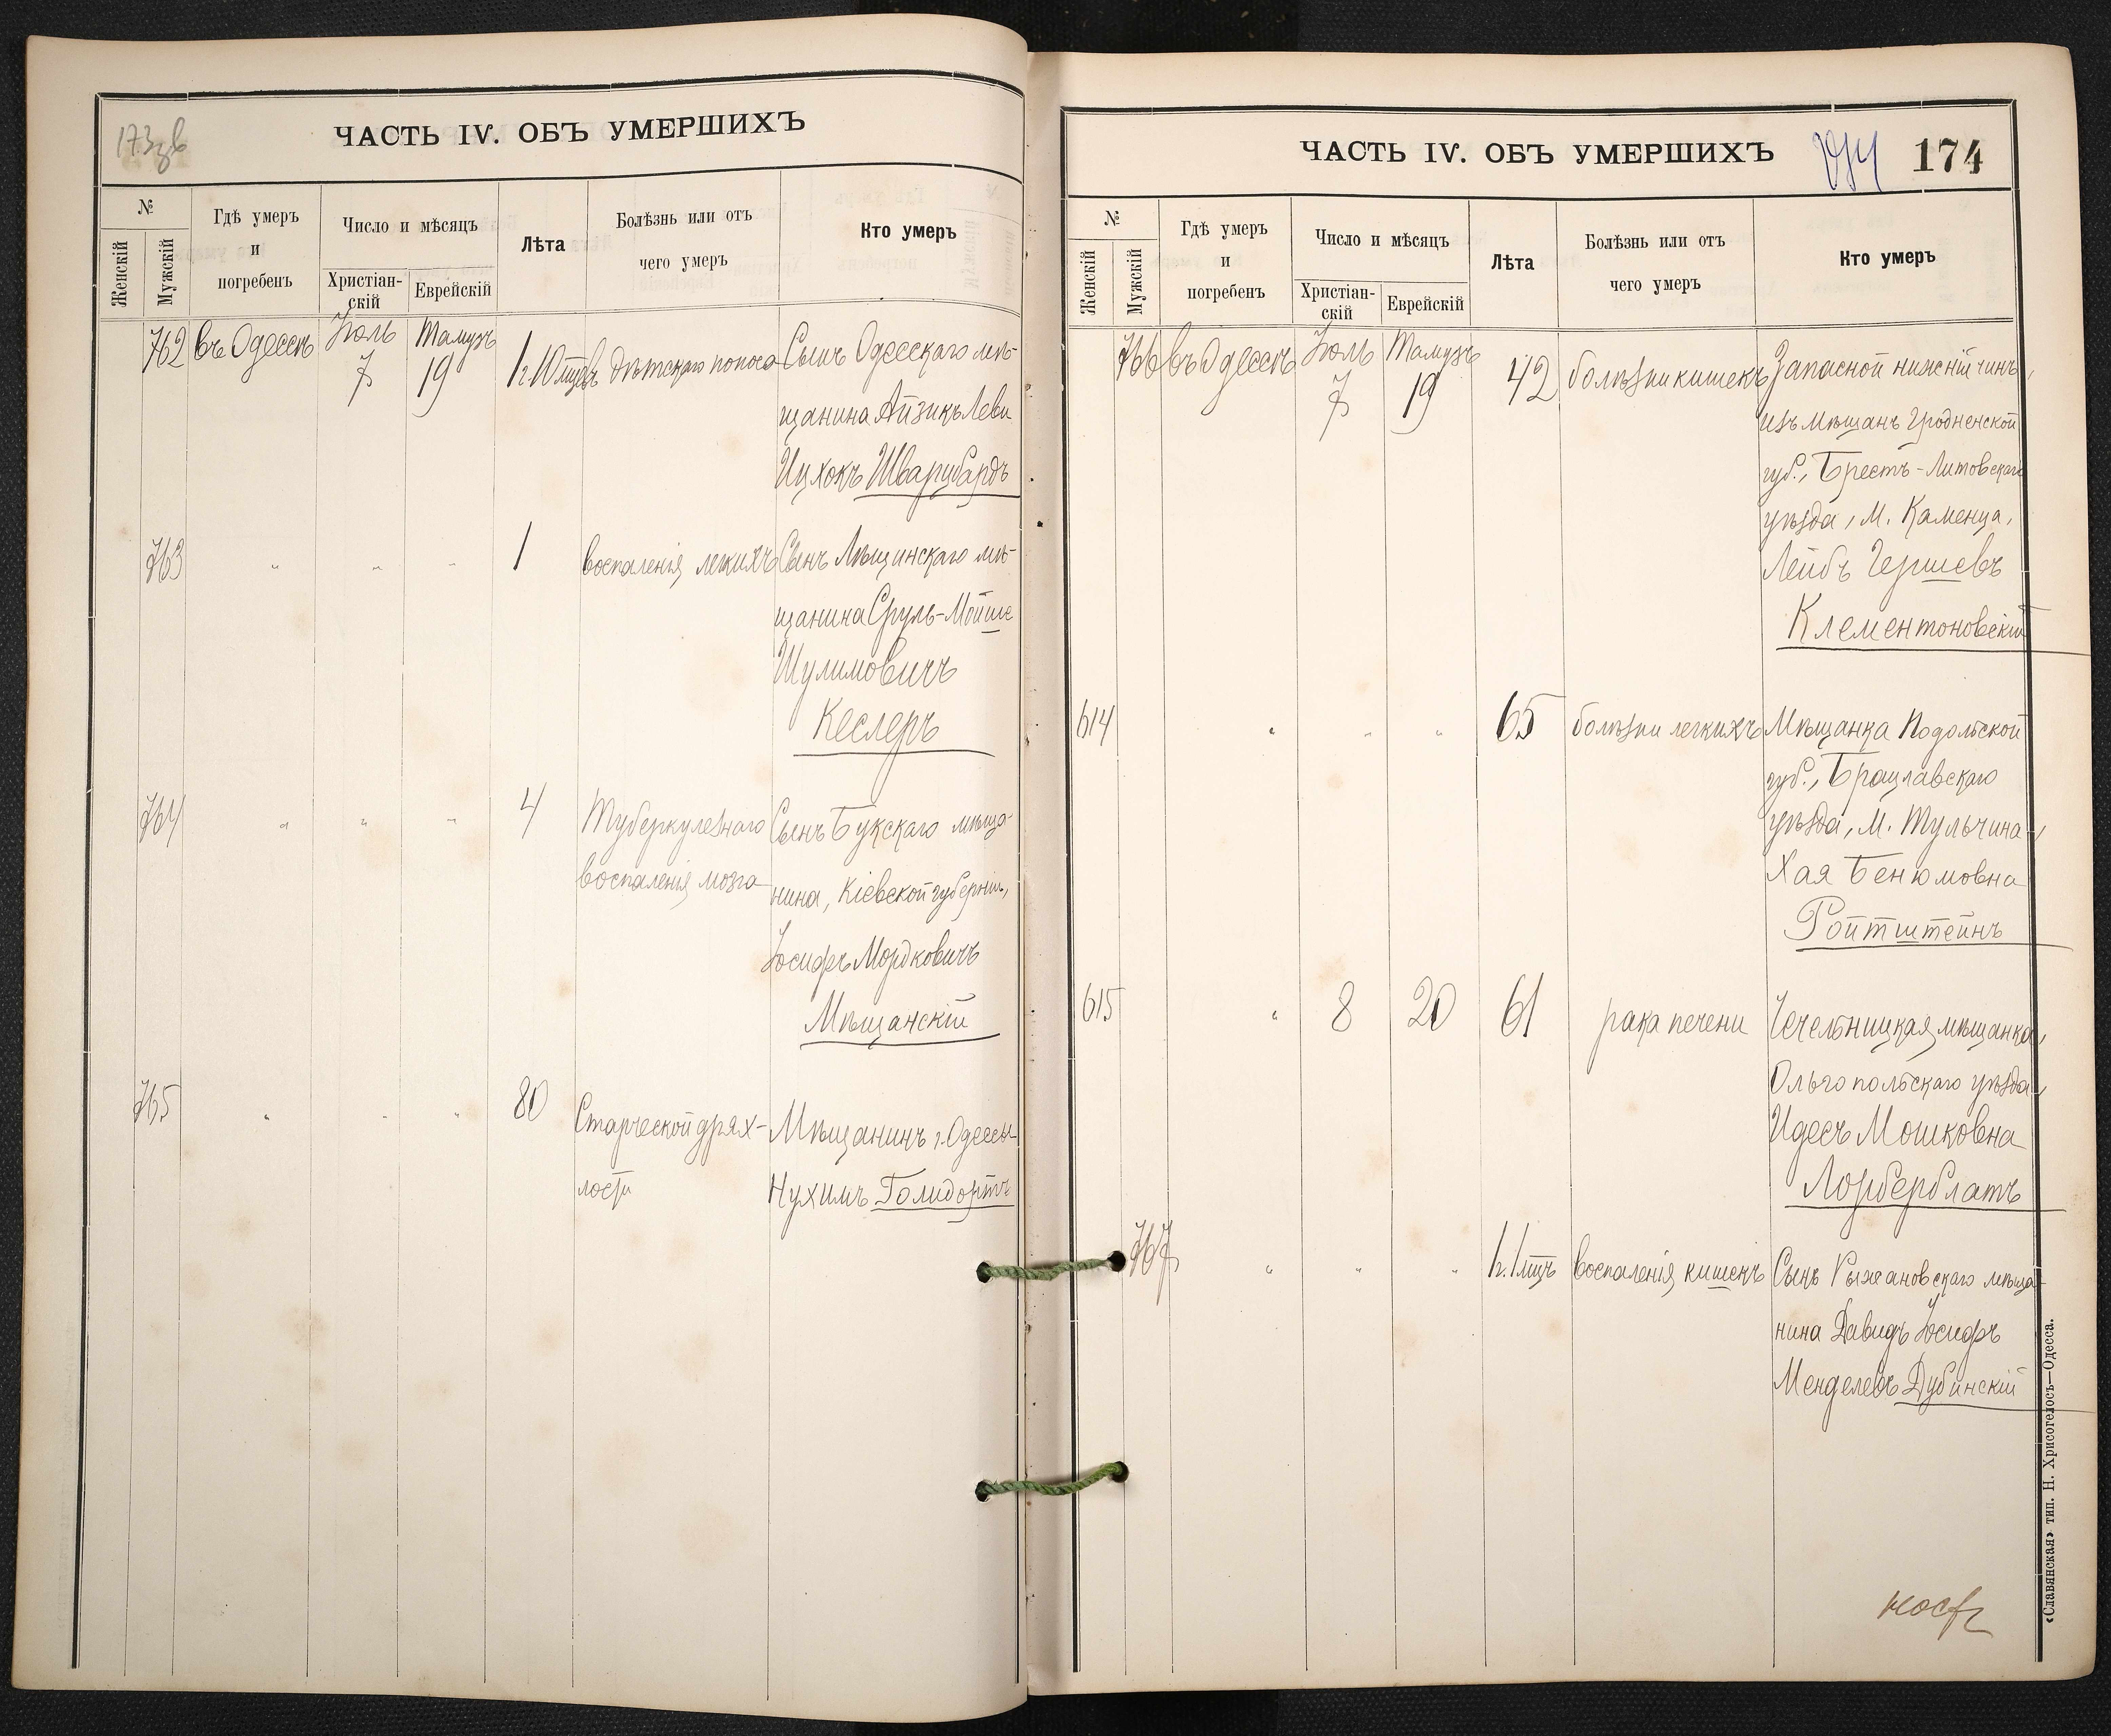 173 зв
ЧАСТЬ IV. ОБЪ УМЕРШИХЪ
№
Женскій
Мужскій
Гдѣ умеръ
и
погребенъ
Число и мѣсяцъ
Христіан-
скій
Еврейскій
Лѣта
Болѣзнь или отъ
чего умеръ
Кто умеръ
762 въ Одессѣ Іюль Тамузъ
7 19 1 г. 10 мцевъ дѣтскаго поноса Сынъ Одесскаго мѣ-
щанина Айзикъ Леви
Ицхокъ Шварцбардъ
763 " " " 1 воспаленія легкихъ Сынъ мѣ-
щанина Сруль-Мойше
Шулимовичъ
Кеслеръ
764 " " " 4 Туберкулезнаго Сынъ Букскаго мѣща-
воспаленія мозга нина, Кіевской губерніи,
Іосифъ Мордковичъ
Мѣщанскій
765 " " " 80 Старческой дрях- Мѣщанинъ г. Одессы
лости Нухимъ Голидортъ
ЧАСТЬ IV. ОБЪ УМЕРШИХЪ
174
№
Женскій
Мужскій
Гдѣ умеръ
и
погребенъ
Число и мѣсяцъ
Христіан-
скій
Еврейскій
Лѣта
Болѣзнь или отъ
чего умеръ
Кто умеръ
766 въ Одессѣ Іюль Тамузъ
7 19 42 болѣзни кишекъ Запасной нижній чинъ,
изъ мѣщанъ Гродненской
губ., Брестъ-Литовскаго
уѣзда, м. Каменца,
Лейбъ Гершевъ
Клементоновскій
614 " " " 65 болѣзни легкихъ Мѣщанка Подольской
губ., Брацлавскаго
уѣзда, м. Тульчина,
Хая Бенюмовна
Ройтштейнъ
615 " 8 20 61 рака печени Чечельницкая мѣщанка,
Ольгопольскаго уѣзда,
Идесъ Мошковна
Лорберблатъ
767 " " " 1 г. 1 мцъ воспаленія кишекъ Сынъ Рыжановскаго мѣща-
нина Давидъ Іосифъ
Менделевъ Дубинскій
«Славянская» тип. Н. Хрисогелосъ—Одесса.